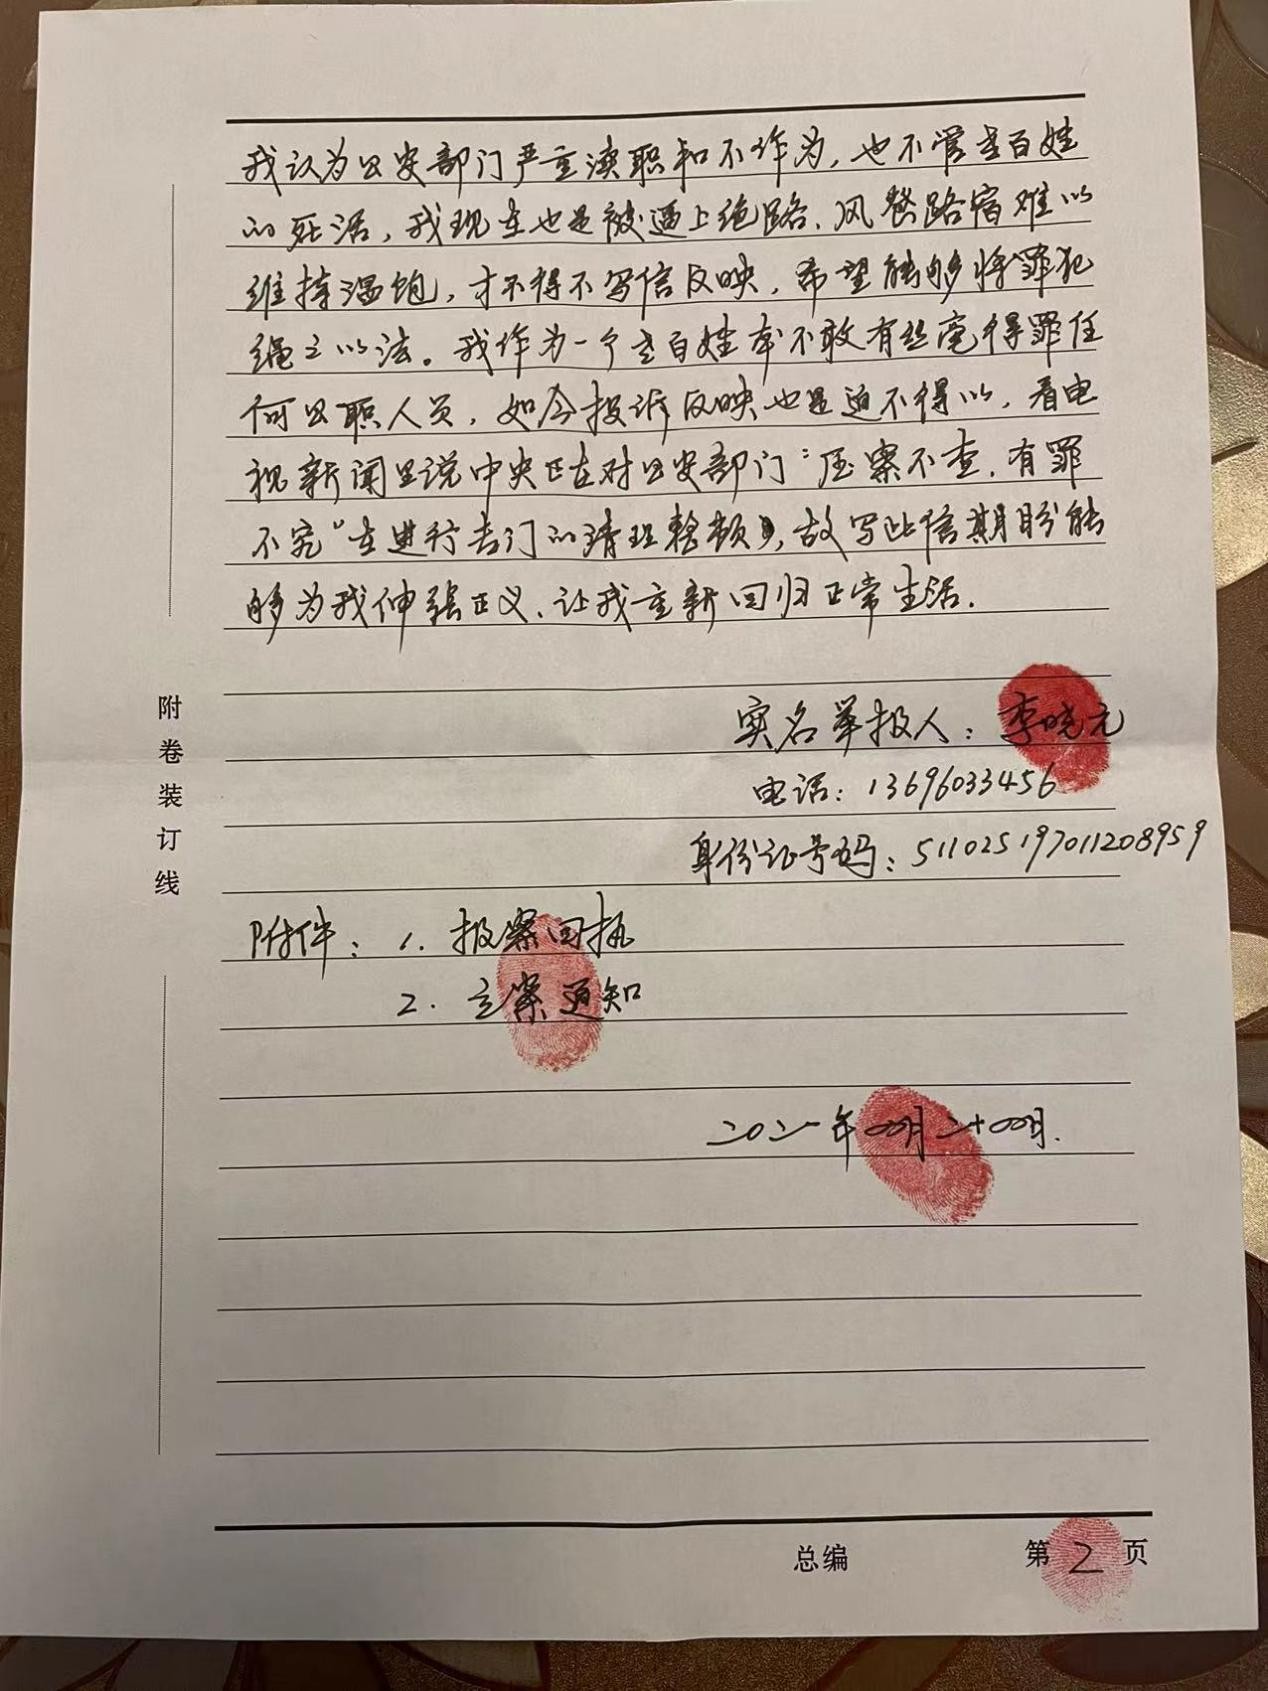 我认为公安部门严重渎职和不作为，也不管老百姓
的死活，我现在也是被逼上绝路、风餐路宿难以
维持温饱，才不得不写信反映，希望能够将罪犯
绳之以法。我作为一个老百姓本不敢有丝毫得罪任
何公职人员，如今投诉反映也是迫不得以，看电
视新闻里说中央正在对公安部门“压案不查、有罪
不究”在进行专门的清理整顿，故写此信期盼能
够为我伸张正义、让我重新回归正常生活。
实名举报人：李晓元
电话：13696033456
身份证号码：511025197011208959
附件：1. 报案回执
2. 立案通知
二〇二一年四月二十四日.
附卷装订线
总编
第 2 页